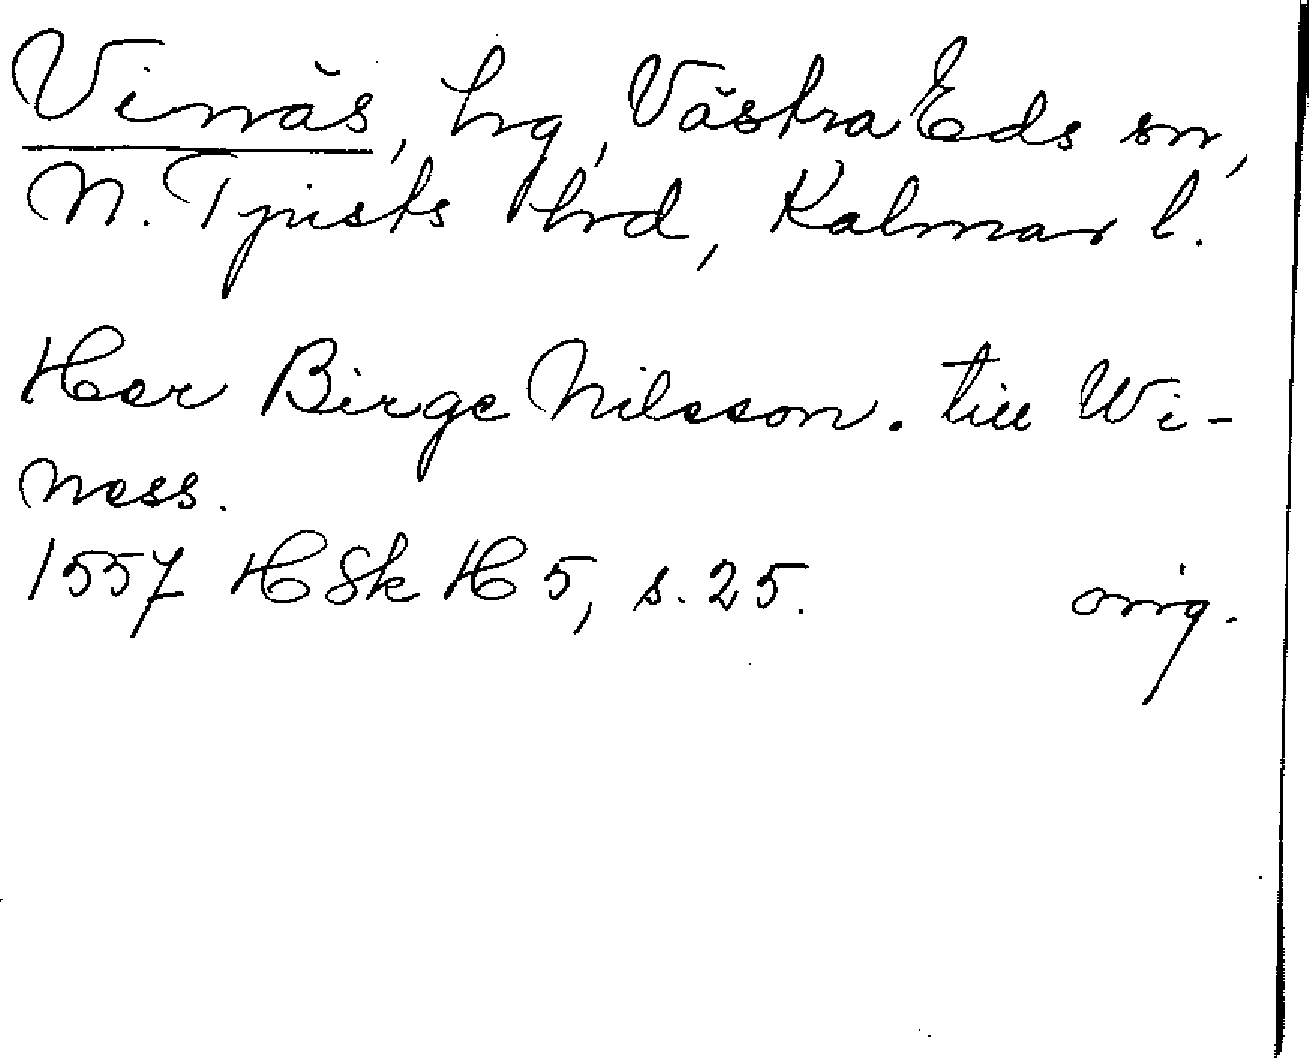 Vinäs, hrg, Västra Eds sn,
N. Tjusts hrd, Kalmar l.
Her Birge Nilsson. till Wi-
ness.
1557 HSk H 5, s. 25. orig.